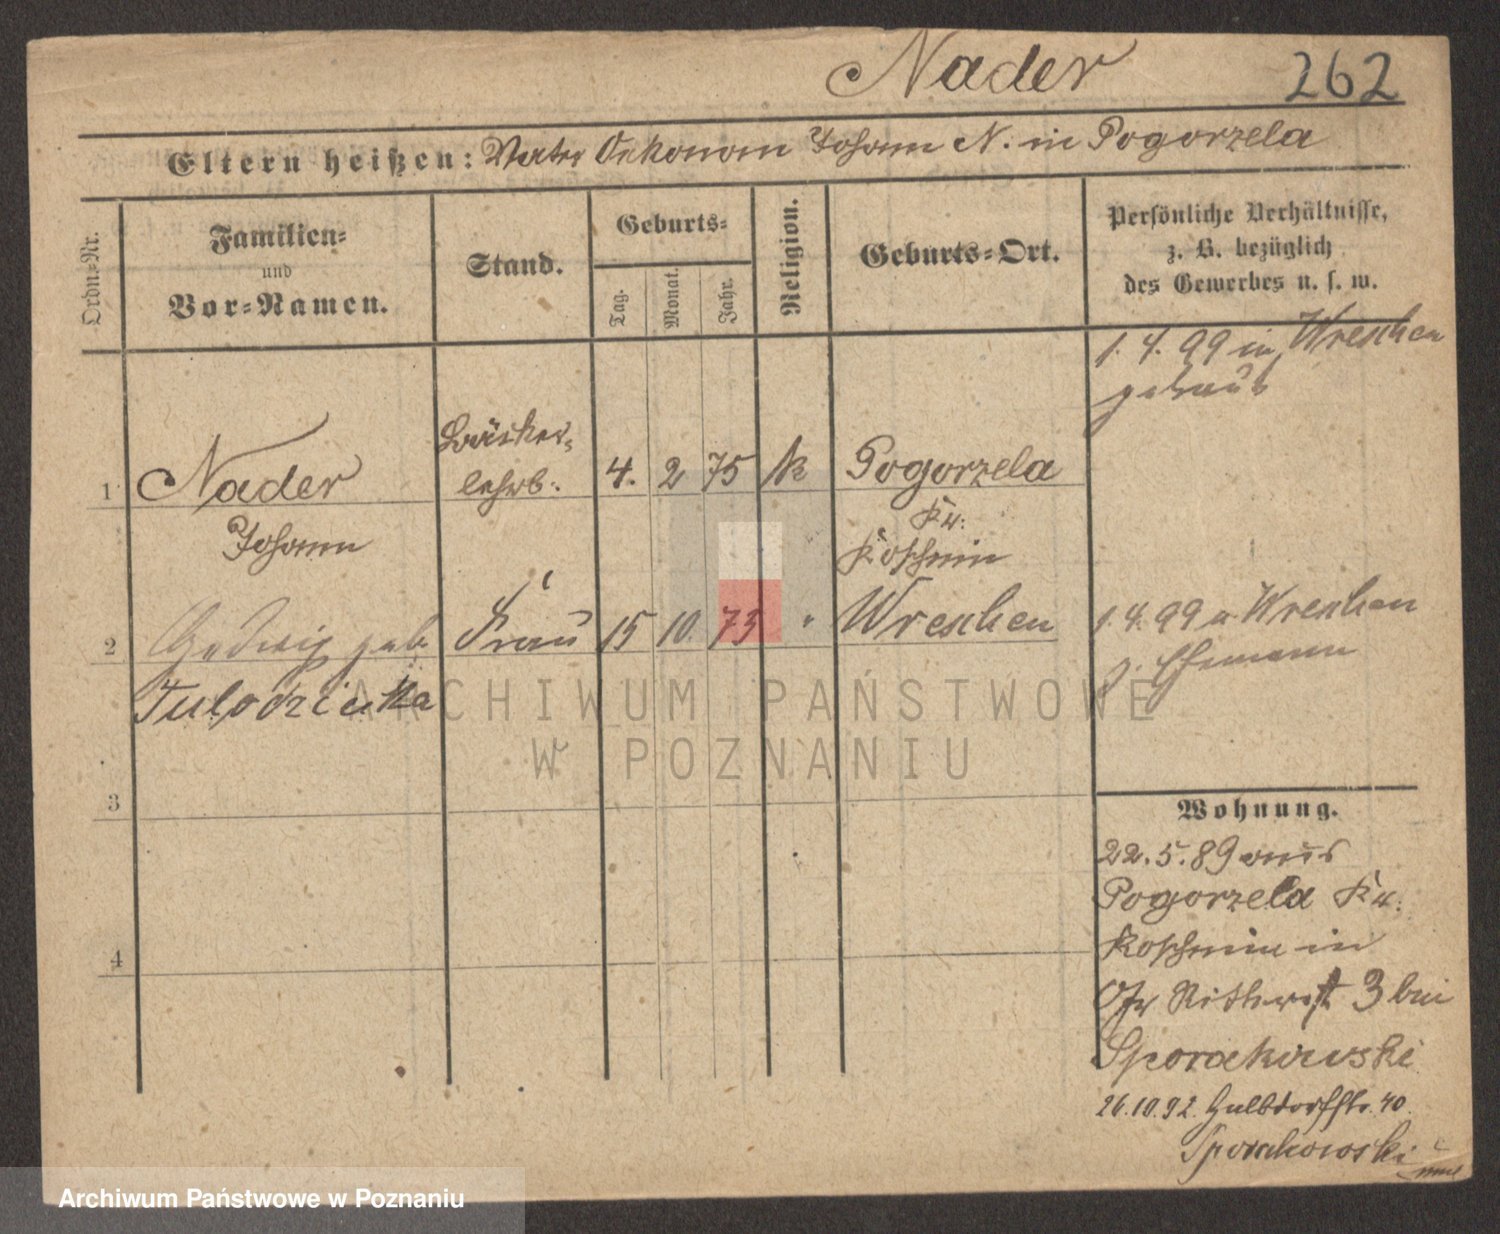 Nader 262
Eltern heißen: Vater Oekonom Johann N. in Pogorzela
Ordn.=Nr.
Familien=
und
Vor=Namen.
Stand.
Geburts=
Tag.
Monat.
Jahr.
Religion.
Geburts=Ort.
Persönliche Verhältnisse,
z. B. bezüglich
des Gewerbes u. s. w.
1. 4. 99 in Wreschen
getraut
Bäcker=
1 Nader lehrl: 4. 2 75 k Pogorzela
Johann Kr:
Koschmin
2 Hedwig geb. Frau 15 10. 75 " Wreschen
1. 4. 99 a. Wreschen
z. Ehemann
Tulodziecka
3
4
Wohnung.
22. 5. 89 aus
Pogorzela Kr:
Koschmin in
Gr Ritterst 3 bei
Sporakowski
26.10.92. 40.
Sporakowski
ARCHIWUM PAŃSTWOWE
W POZNANIU
Archiwum Państwowe w Poznaniu